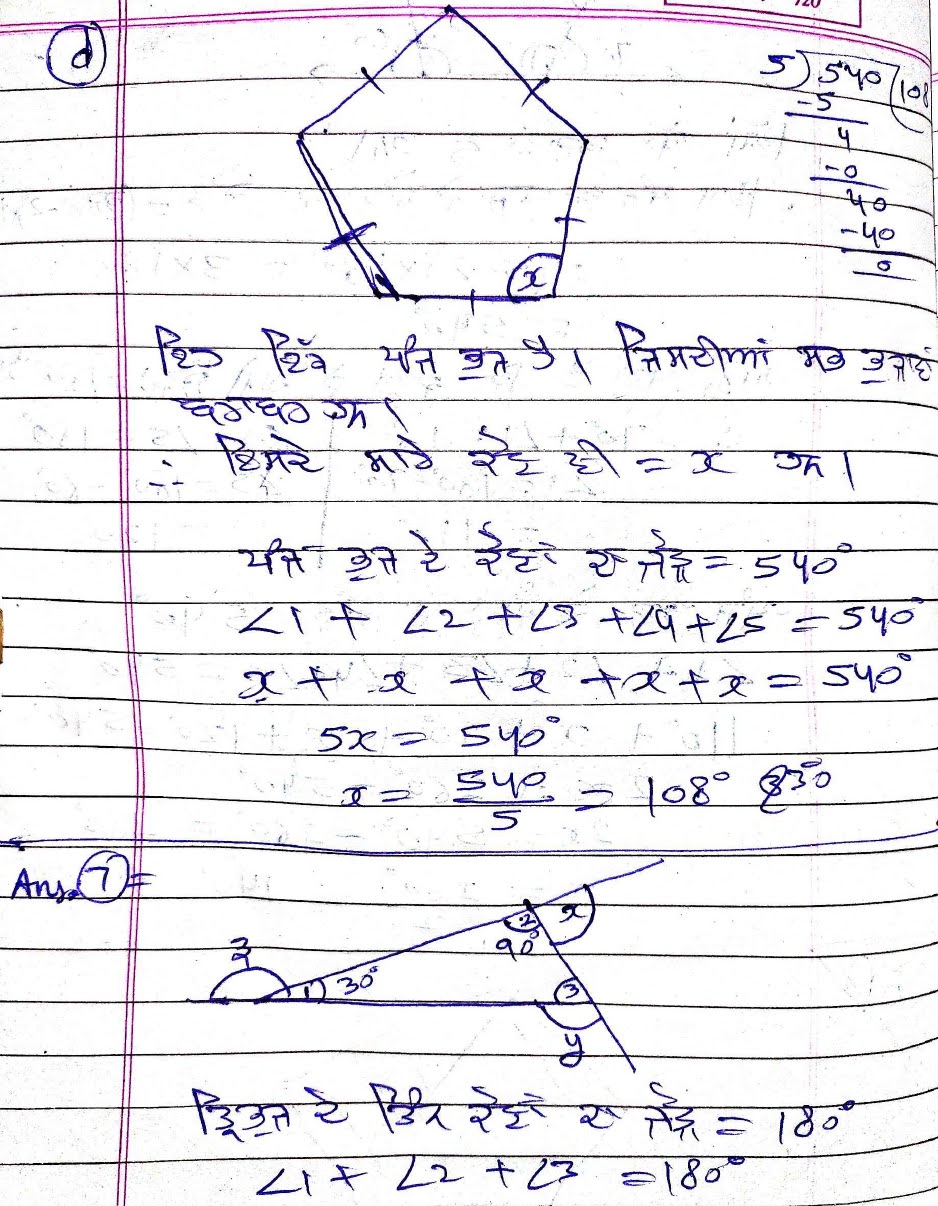 d
5)540(108
-5
4
-0
40
-40
0
x
ਇਹ ਇੱਕ ਪੰਜ ਭੁਜ ਹੈ। ਜਿਸਦੀਆਂ ਸਭ ਭੁਜਾਵਾਂ
ਬਰਾਬਰ ਹਨ।
∴ ਇਸਦੇ ਸਾਰੇ ਕੋਣ ਵੀ = x ਹਨ।
ਪੰਜ ਭੁਜ ਦੇ ਕੋਣਾਂ ਦਾ ਜੋੜ = 540°
∠1 + ∠2 + ∠3 + ∠4 + ∠5 = 540°
x + x + x + x + x = 540°
5x = 540°
x = 540/5 = 108°
Ans. 7 =
z 1 30° 2 90° x 3 y
ਤ੍ਰਿਭੁਜ ਦੇ ਤਿੰਨ ਕੋਣਾਂ ਦਾ ਜੋੜ = 180°
∠1 + ∠2 + ∠3 = 180°